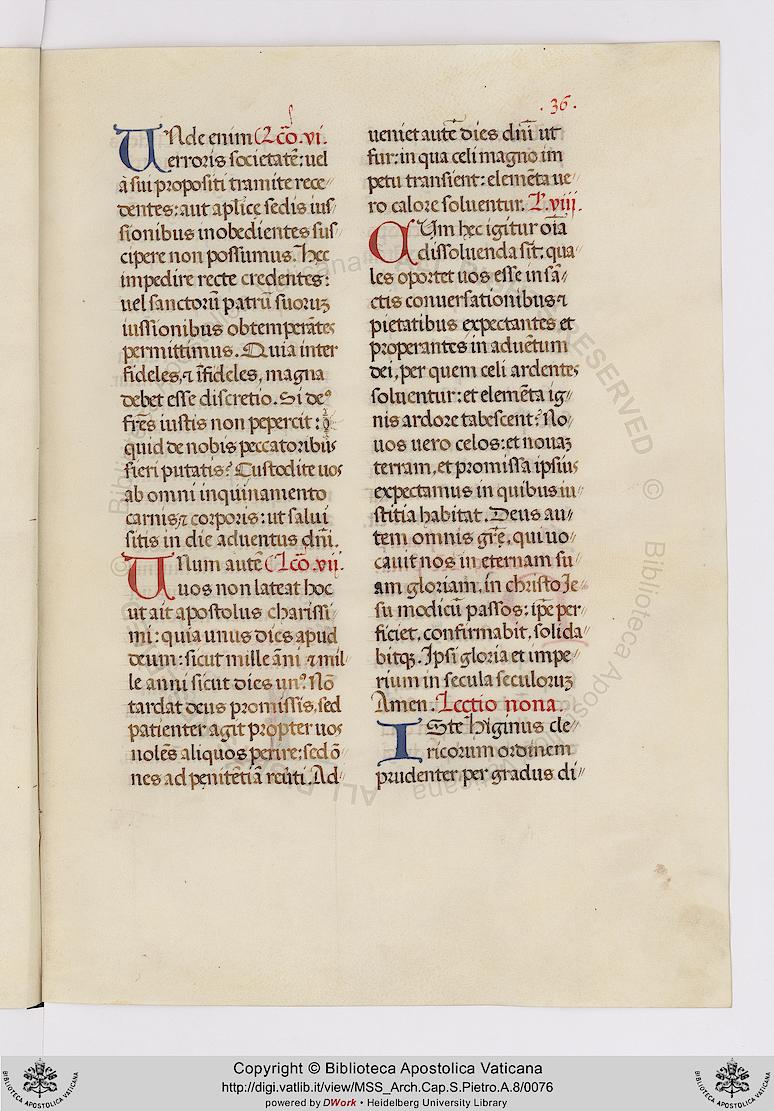 . 36 .
UNde enim Lc̄o. vi.
erroris societatē: uel
à sui propositi tramite rece〃
dentes: aut aplīce sedis ius〃
sionibus inobedientes sus〃
cipere non possumus. Hec
impedire recte credentes:
uel sanctorū patrū suoruꝫ
iussionibus obtemperātes
permittimus. Quia inter
fideles, ⁊ īfideles, magna
debet esse discretio. Si deꝰ
frēs iustis non pepercit:
quid de nobis peccatoribus
fieri putatis? Custodite uos
ab omni inquinamento
carnis, ⁊ corporis: ut salui
sitis in die aduentus dn̄i.
UNum autē Lc̄o. vii.
uos non lateat hoc
ut ait apostolus charissi〃
mi: quia unus dies apud
deum: sicut mille ān̄i ⁊ mil〃
le anni sicut dies unꝰ. Nō
tardat deus promissis, sed
patienter agit propter uos
nolēs aliquos perire: sed ō〃
nes ad penitētiā reūti. Ad〃
ueniet autē dies dn̄i ut
fur: in qua celi magno im
petu transient: elemēta ue〃
ro calore soluentur. L. viii.
CUm hec igitur oīa
dissoluenda sīt: qua〃
les oportet uos esse in sā〃
ctis conuersationibus ⁊
pietatibus expectantes et
properantes in aduētum
dei, per quem celi ardentes
soluentur: et elemēta ig〃
nis ardore tabescent? No〃
uos uero celos: et nouaꝫ
terram, et promissa ipsius
expectamus in quibus iu〃
stitia habitat. Deus au〃
tem omnis grē, qui uo〃
cauit nos in eternam su〃
am gloriam, in christo Ie〃
su modicū passos: ip̄e per〃
ficiet, confirmabit, solida〃
bitqꝫ. Ipsi gloria et impe〃
rium in secula seculoruꝫ
Amen. Lectio nona.
ISte Higinus cle〃
ricorum ordinem
prudenter per gradus di〃
Copyright © Biblioteca Apostolica Vaticana
http://digi.vatlib.it/view/MSS_Arch.Cap.S.Pietro.A.8/0076
powered by DWork • Heidelberg University Library